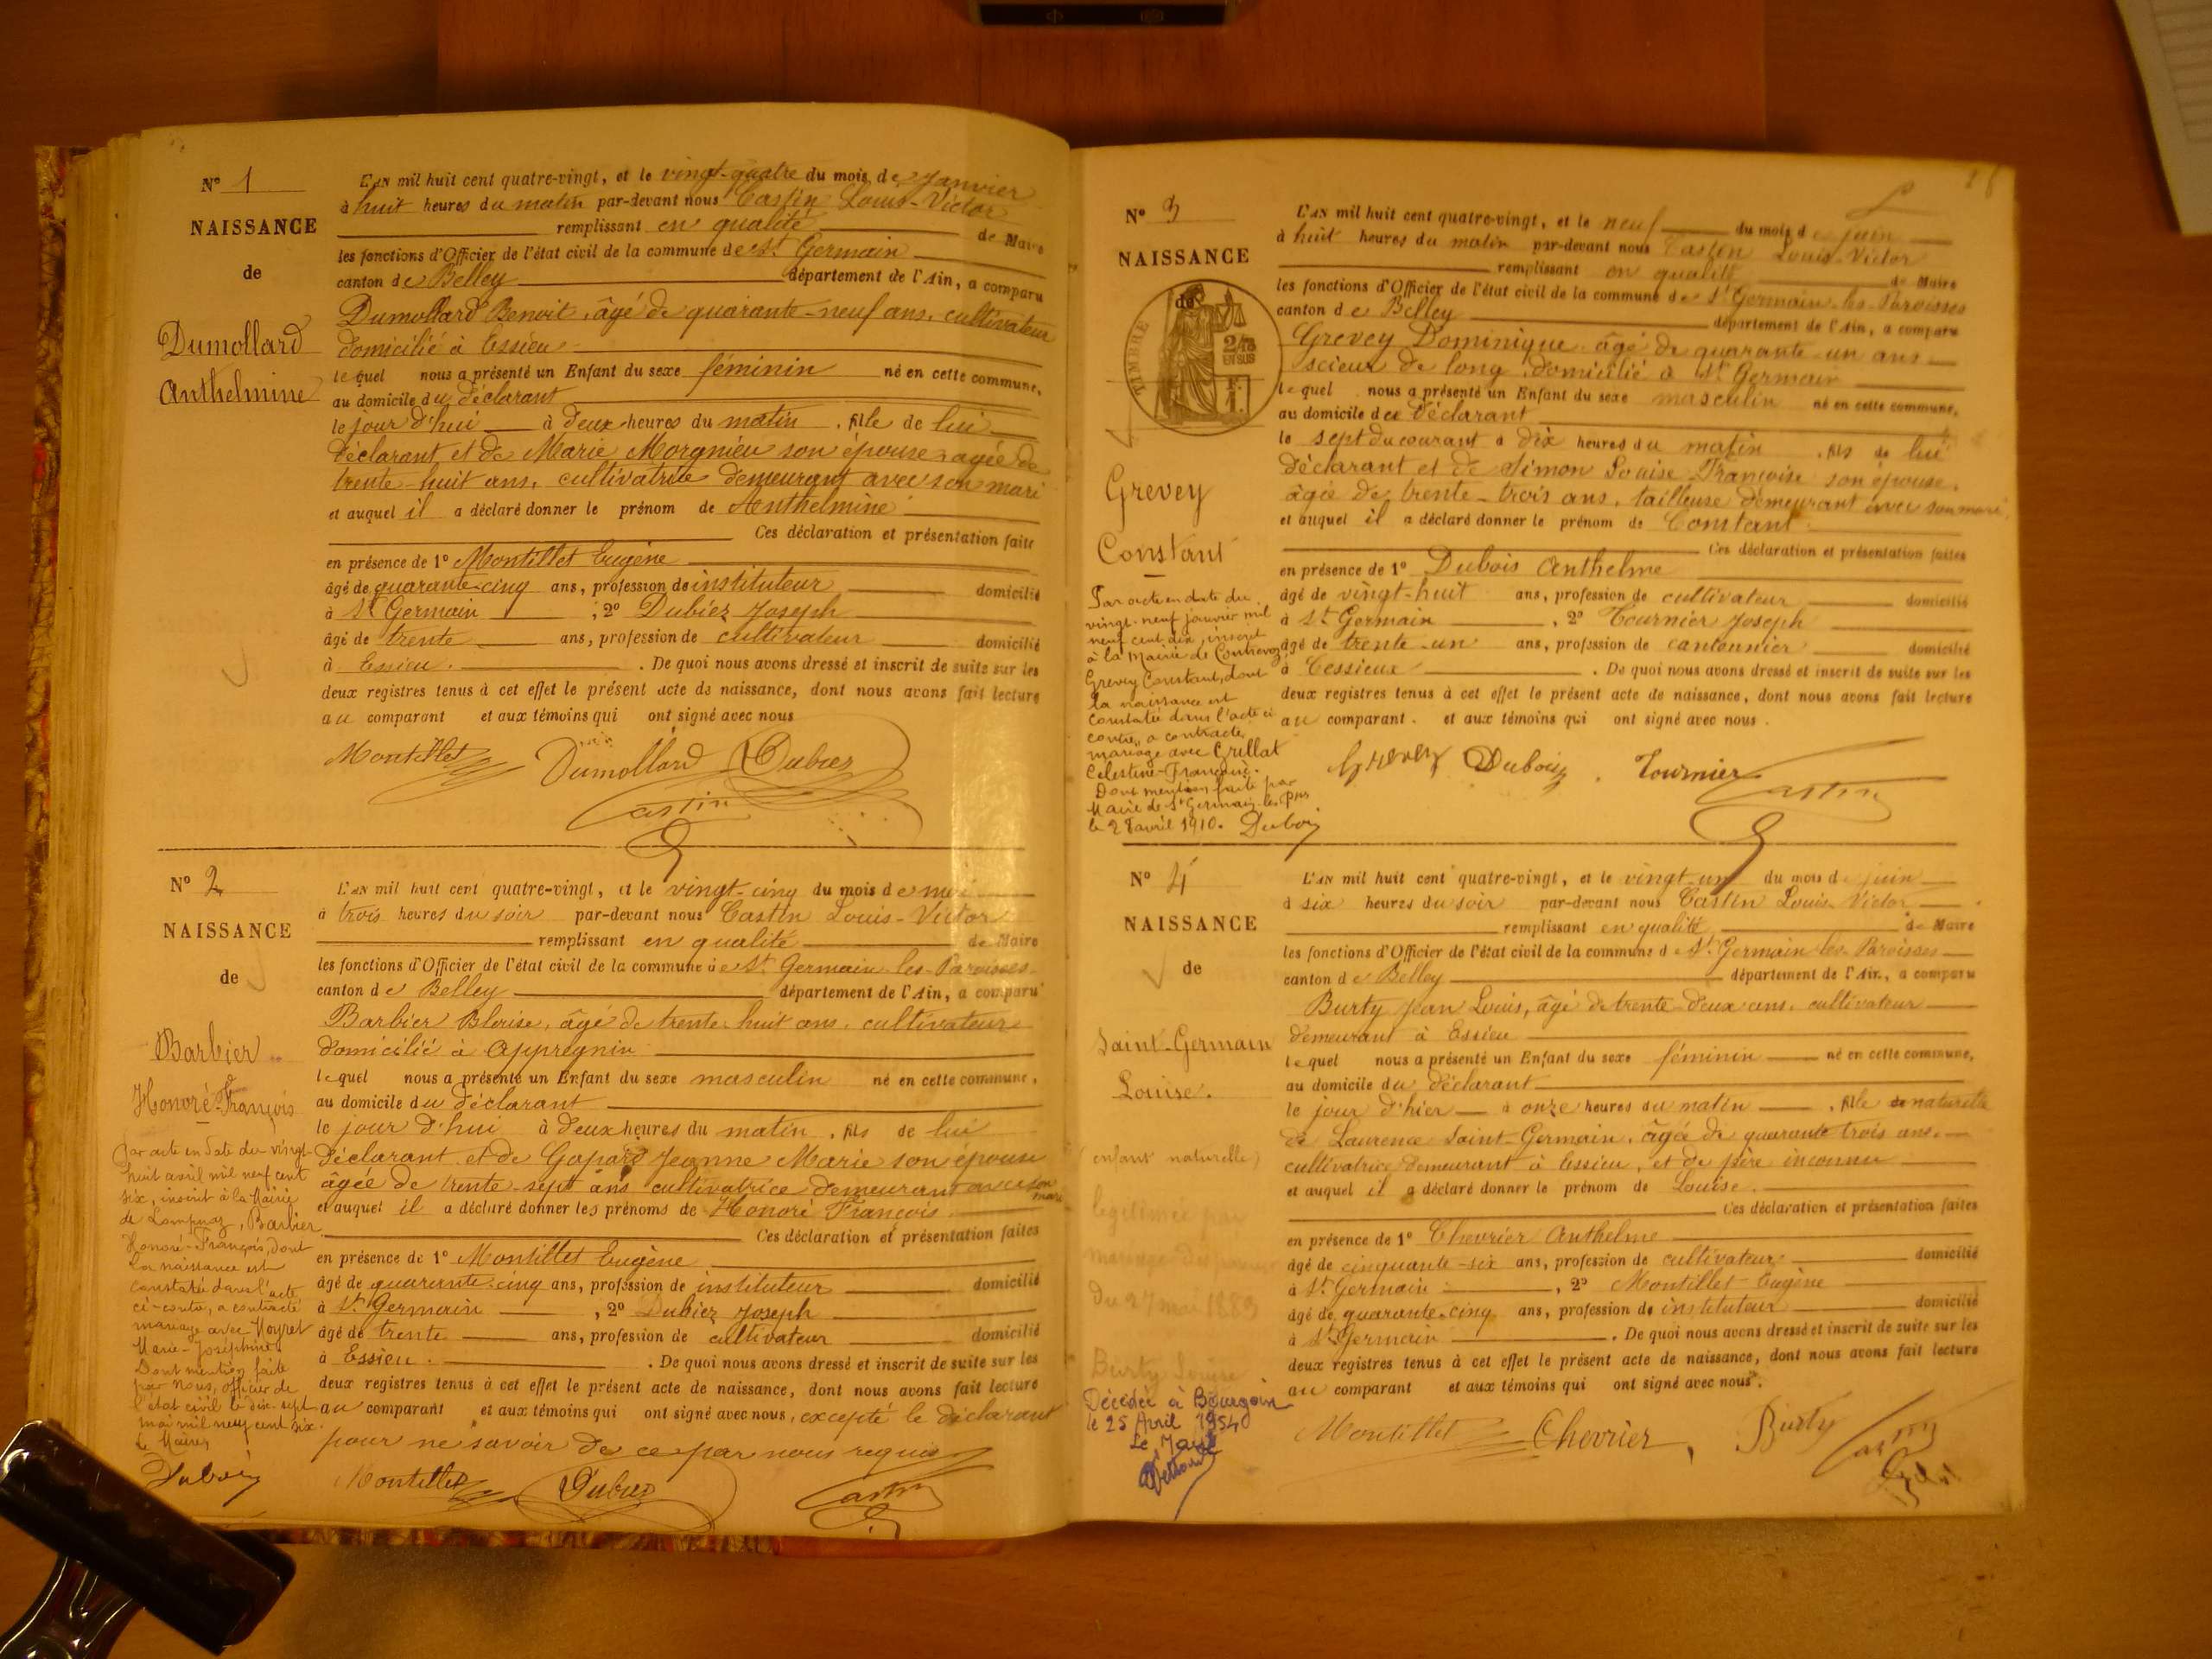 N° 1
NAISSANCE
de
Dumollard
Anthelmine
L'AN mil huit cent quatre-vingt, et le vingt-quatre du mois de Janvier
à huit heures du matin par-devant nous Castin Louis-Victor
remplissant en qualité de Maire
les fonctions d'Officier de l'état civil de la commune de St Germain
canton de Belley département de l'Ain, a comparu
Dumollard Benoit, âgé de quarante-neuf ans, cultivateur
domicilié à Essieu
lequel nous a présenté un Enfant du sexe féminin né en cette commune,
au domicile du déclarant
le jour d'hui à deux heures du matin, fille de lui
déclarant et de Marie Morgnieu son épouse agée de
trente-huit ans, cultivatrice demeurant avec son mari
et auquel il a déclaré donner le prénom de Anthelmine
Ces déclaration et présentation faite
en présence de 1° Montillet Eugène
âgé de quarante-cinq ans, profession de instituteur domicilié
à St Germain ; 2° Dubiez Joseph
âgé de trente ans, profession de cultivateur domicilié
à Essieu. . De quoi nous avons dressé et inscrit de suite sur les
deux registres tenus à cet effet le présent acte de naissance, dont nous avons fait lecture
au comparant et aux témoins qui ont signé avec nous
Montillet Dumollard Dubiez
Castin
N° 2
NAISSANCE
de
Barbier
Honoré-François
Par acte en date du vingt
huit avril mil neuf cent
six, inscrit à la Mairie
de , Barbier
Honoré-François, dont
la naissance est
constatée dans l'acte
ci-contre, a contracté
mariage avec Moyret
Marie-Joséphine
Dont mention faite
par nous, officier de
l'état civil le dix-sept
mai mil neuf cent six.
Le Maire,
Dubois
L'AN mil huit cent quatre-vingt, et le vingt-cinq du mois de mai
à trois heures du soir par-devant nous Castin Louis-Victor
remplissant en qualité de Maire
les fonctions d'Officier de l'état civil de la commune de St Germain-les-Paroisses
canton de Belley département de l'Ain, a comparu
Barbier Blaise, âgé de trente-huit ans, cultivateur
domicilié à Appregnin
lequel nous a présenté un Enfant du sexe masculin né en cette commune,
au domicile du déclarant
le jour d'hui à deux heures du matin, fils de lui
déclarant et de Gapard Jeanne Marie son épouse
âgée de trente-sept ans cultivatrice demeurant avec son mari
et auquel il a déclaré donner les prénoms de Honoré François.
Ces déclaration et présentation faites
en présence de 1° Montillet Eugène
âgé de quarante-cinq ans, profession de instituteur domicilié
à St Germain , 2° Dubiez Joseph
âgé de trente ans, profession de cultivateur domicilié
à Essieu. . De quoi nous avons dressé et inscrit de suite sur les
deux registres tenus à cet effet le présent acte de naissance, dont nous avons fait lecture
au comparant et aux témoins qui ont signé avec nous, excepté le déclarant
pour ne savoir de ce par nous requis
Montillet Dubiez Castin
N° 3
NAISSANCE
de
TIMBRE
2/10
EN SUS
Grevey
Constant
Par acte en date du
vingt-neuf janvier mil
neuf cent dix, inscrit
à la Mairie de Contrevoz,
Grevey Constant, dont
la naissance est
constatée dans l'acte ci
contre, a contracté
mariage avec Crillat
Célestine-Françoise.
Dont mention faite par
Maire de St Germain-les-Pses
le 2 avril 1910. Dubois
L'AN mil huit cent quatre-vingt, et le neuf du mois de juin
à huit heures du matin par-devant nous Castin Louis-Victor
remplissant en qualité de Maire
les fonctions d'Officier de l'état civil de la commune de St Germain-les-Paroisses
canton de Belley département de l'Ain, a comparu
Grevey Dominique âgé de quarante-un ans
scieur de long, domicilié à St Germain
lequel nous a présenté un Enfant du sexe masculin né en cette commune,
au domicile du déclarant
le sept du courant à dix heures du matin , fils de lui
déclarant et de Simon Louise Françoise son épouse,
âgée de trente-trois ans, tailleuse demeurant avec son mari,
et auquel il a déclaré donner le prénom de Constant.
Ces déclaration et présentation faites
en présence de 1° Dubois Anthelme
âgé de vingt-huit ans, profession de cultivateur domicilié
à St Germain , 2° Tournier Joseph
âgé de trente-un ans, profession de cantonnier domicilié
à Cessieux . De quoi nous avons dressé et inscrit de suite sur les
deux registres tenus à cet effet le présent acte de naissance, dont nous avons fait lecture
au comparant. et aux témoins qui ont signé avec nous.
Grevey Dubois Tournier
Castin
N° 4
NAISSANCE
de
Saint-Germain
Louise.
(enfant naturelle)
légitimée par
mariage
du 27 mai 1883
Burty Louise
Décédée à Bourgoin
le 25 Avril 1954
Le Maire
L'AN mil huit cent quatre-vingt, et le vingt-un du mois de juin
à six heures du soir par-devant nous Castin Louis-Victor
remplissant en qualité de Maire
les fonctions d'Officier de l'état civil de la commune de St Germain-les-Paroisses
canton de Belley département de l'Ain, a comparu
Burty Jean Louis, âgé de trente-deux ans, cultivateur
demeurant à Essieu
lequel nous a présenté un Enfant du sexe féminin né en cette commune,
au domicile du déclarant
le jour d'hier à onze heures du matin , fille de naturelle
de Laurence Saint-Germain, âgée de quarante trois ans,
cultivatrice demeurant à Essieu, et de père inconnu
et auquel il a déclaré donner le prénom de Louise.
Ces déclaration et présentation faites
en présence de 1° Chevrier Anthelme
âgé de cinquante-six ans, profession de cultivateur domicilié
à St Germain , 2° Montillet Eugène
âgé de quarante-cinq ans, profession de instituteur domicilié
à St Germain . De quoi nous avons dressé et inscrit de suite sur les
deux registres tenus à cet effet le présent acte de naissance, dont nous avons fait lecture
au comparant et aux témoins qui ont signé avec nous.
Montillet Chevrier, Burty Castin